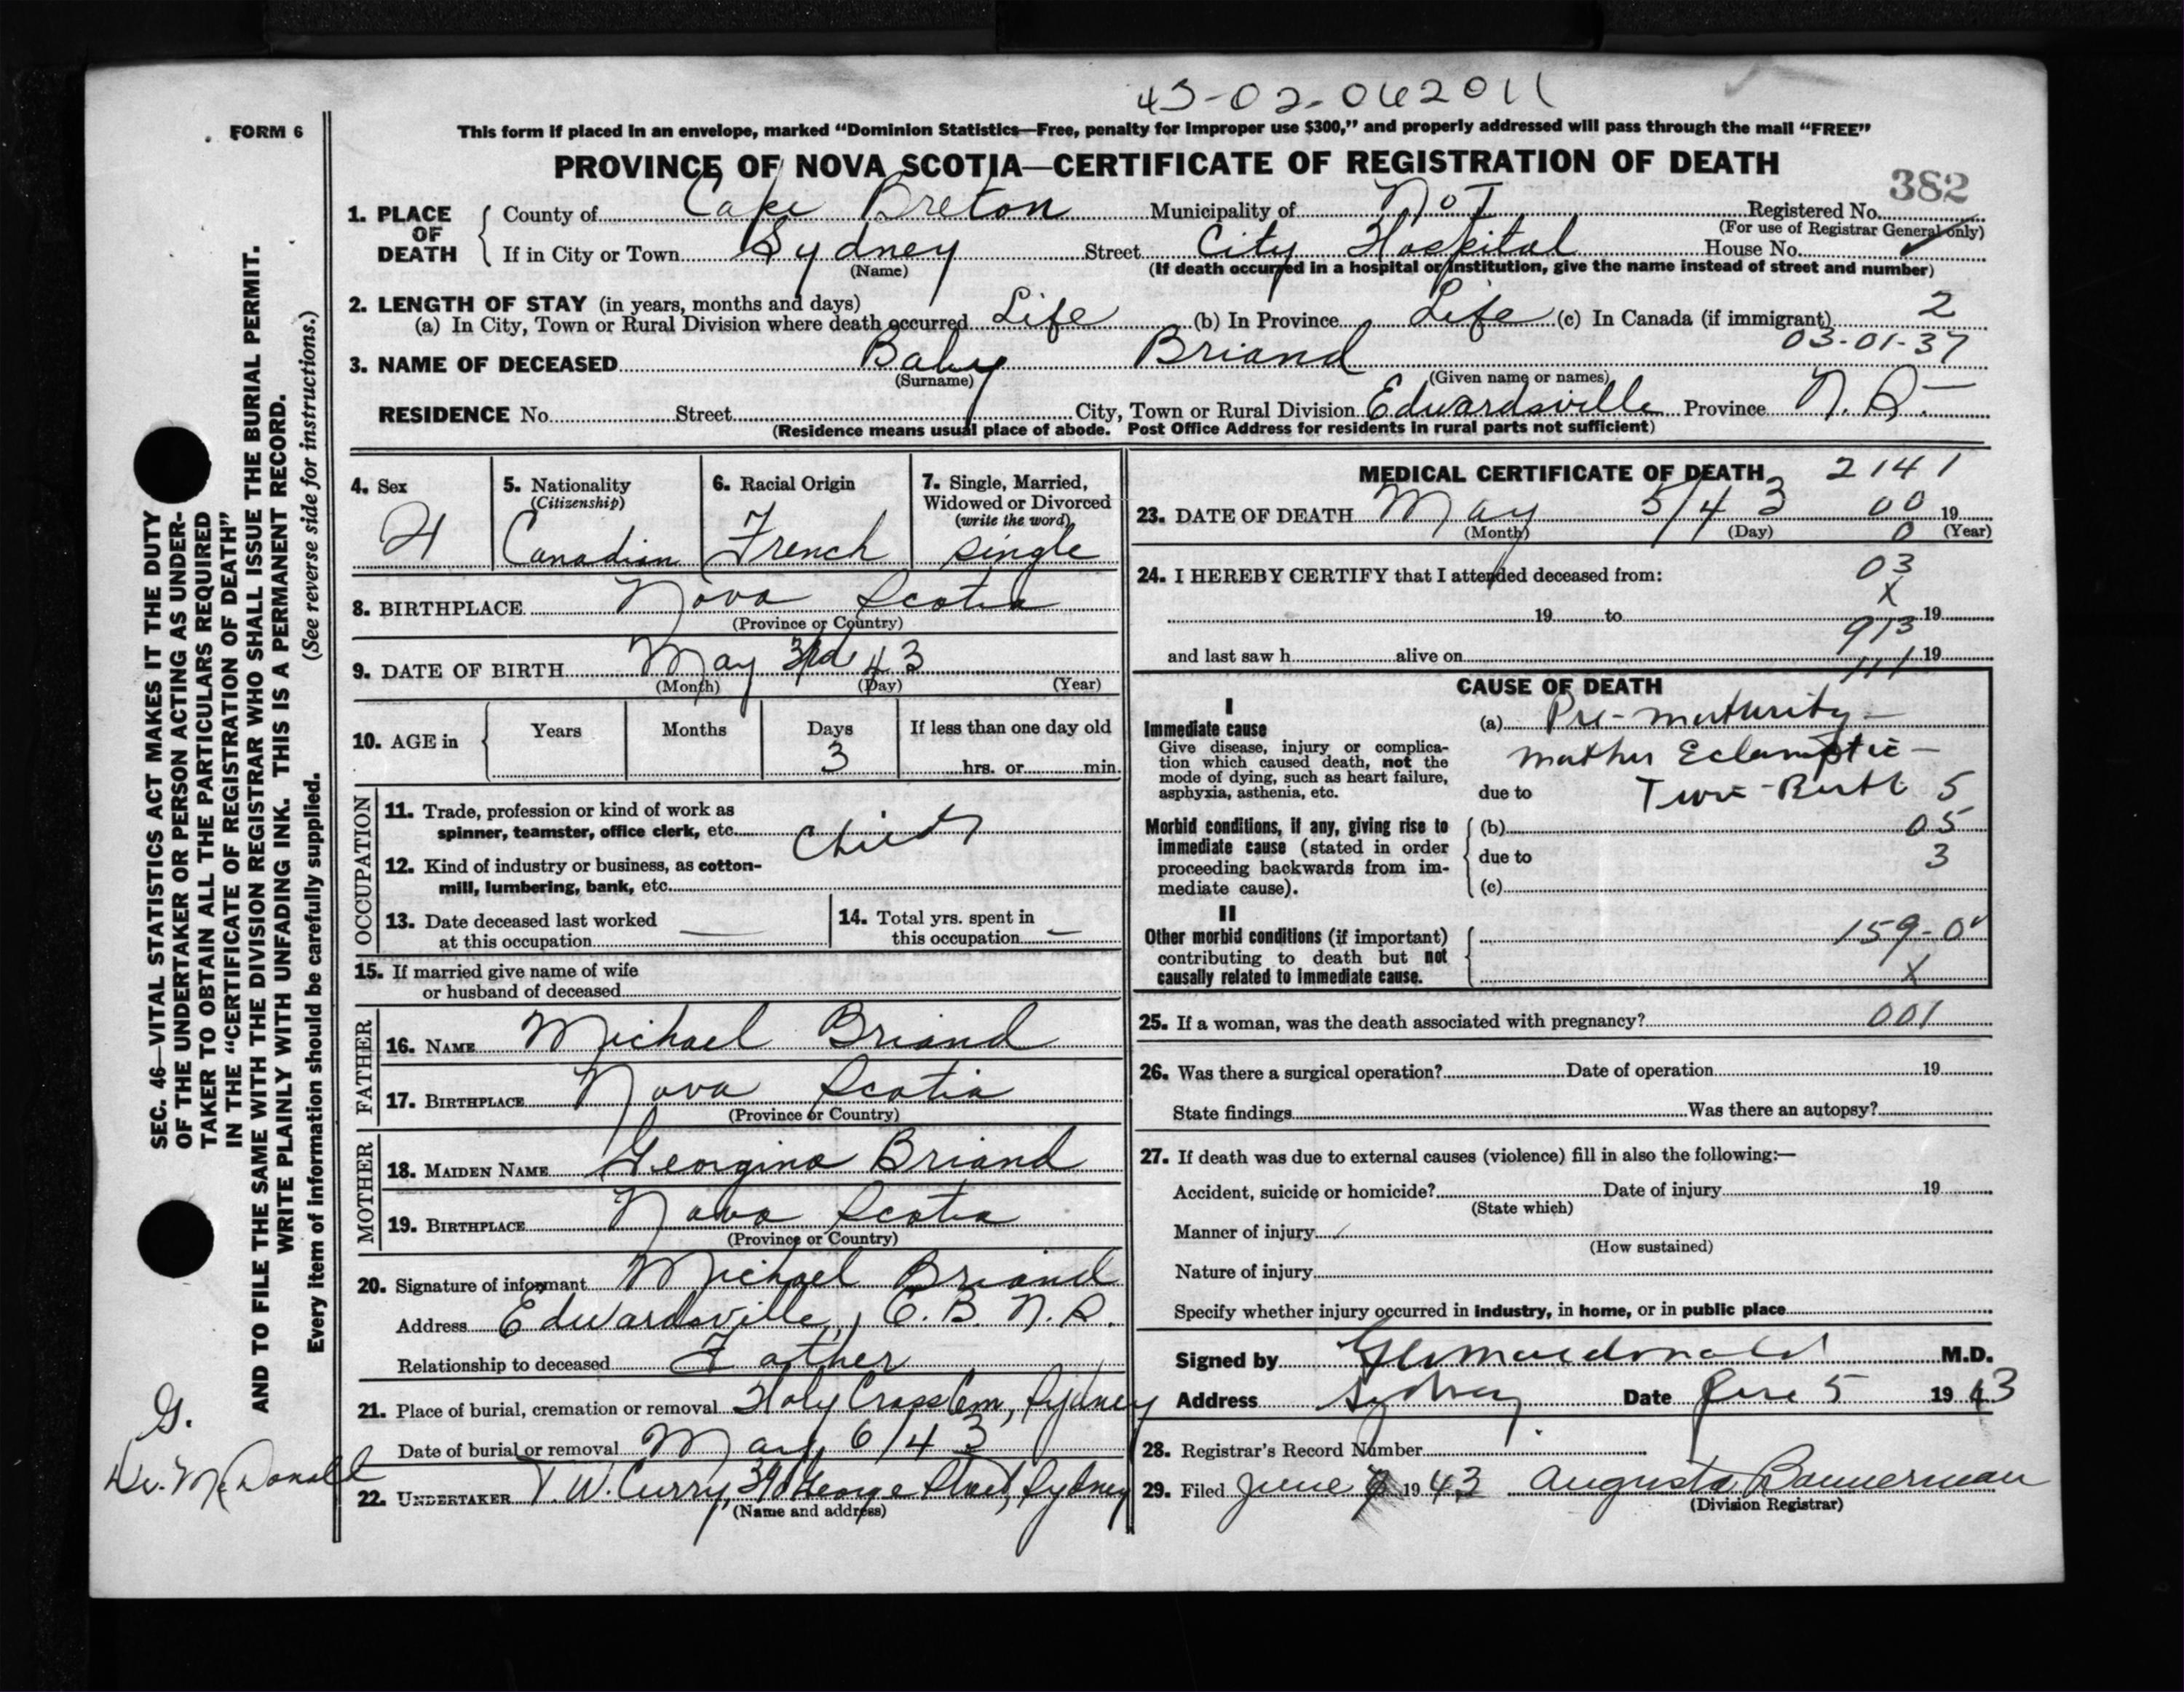 45-02-062011
FORM 6
This form if placed in an envelope, marked "Dominion Statistics—Free, penalty for improper use $300," and properly addressed will pass through the mail "FREE"
PROVINCE OF NOVA SCOTIA—CERTIFICATE OF REGISTRATION OF DEATH
382
1. PLACE OF DEATH
County of Cape Breton Municipality of Registered No.
(For use of Registrar General only)
If in City or Town Sydney Street City Hospital House No.
(Name) (If death occurred in a hospital or institution, give the name instead of street and number)
2. LENGTH OF STAY (in years, months and days)
(a) In City, Town or Rural Division where death occurred Life (b) In Province Life (c) In Canada (if immigrant) 2
03-01-37
3. NAME OF DECEASED Baby Briand
(Surname) (Given name or names)
RESIDENCE No. Street City, Town or Rural Division Edwardsville Province N.S.
(Residence means usual place of abode. Post Office Address for residents in rural parts not sufficient)
4. Sex
5. Nationality (Citizenship) Canadian
6. Racial Origin French
7. Single, Married, Widowed or Divorced (write the word) single
8. BIRTHPLACE Nova Scotia
(Province or Country)
9. DATE OF BIRTH May 3rd 43
(Month) (Day) (Year)
10. AGE in Years Months Days 3 If less than one day old
hrs. or min.
OCCUPATION
11. Trade, profession or kind of work as spinner, teamster, office clerk, etc. Child
12. Kind of industry or business, as cotton-mill, lumbering, bank, etc.
13. Date deceased last worked at this occupation —
14. Total yrs. spent in this occupation —
15. If married give name of wife or husband of deceased
FATHER
16. NAME Michael Briand
17. BIRTHPLACE Nova Scotia
(Province or Country)
MOTHER
18. MAIDEN NAME Georgina Briand
19. BIRTHPLACE Nova Scotia
(Province or Country)
20. Signature of informant Michael Briand
Address Edwardsville, C.B. N.S.
Relationship to deceased Father
21. Place of burial, cremation or removal Holy Cross Cem, Sydney
Date of burial or removal May 6/43
22. UNDERTAKER T.W. Curry, George Street, Sydney
(Name and address)
MEDICAL CERTIFICATE OF DEATH 2141
23. DATE OF DEATH May 5/43 00 19
(Month) (Day) 0 (Year)
24. I HEREBY CERTIFY that I attended deceased from: 03
X
19 to 19
913
and last saw h alive on 19
111
CAUSE OF DEATH
I
Immediate cause
Give disease, injury or complication which caused death, not the mode of dying, such as heart failure, asphyxia, asthenia, etc.
(a) Pre-maturity —
Mother Eclamptic —
due to Twin Birth 5
Morbid conditions, if any, giving rise to immediate cause (stated in order proceeding backwards from immediate cause).
(b) 05
due to 3
(c)
II
Other morbid conditions (if important) contributing to death but not causally related to immediate cause.
159-0
X
25. If a woman, was the death associated with pregnancy? 001
26. Was there a surgical operation? Date of operation 19
State findings Was there an autopsy?
27. If death was due to external causes (violence) fill in also the following:—
Accident, suicide or homicide? Date of injury 19
(State which)
Manner of injury
(How sustained)
Nature of injury
Specify whether injury occurred in industry, in home, or in public place
Signed by Macdonald M.D.
Address Sydney Date June 5 1943
28. Registrar's Record Number
29. Filed June 1943 Augusta Bannerman
(Division Registrar)
SEC. 46—VITAL STATISTICS ACT MAKES IT THE DUTY
OF THE UNDERTAKER OR PERSON ACTING AS UNDER-
TAKER TO OBTAIN ALL THE PARTICULARS REQUIRED
IN THE "CERTIFICATE OF REGISTRATION OF DEATH"
AND TO FILE THE SAME WITH THE DIVISION REGISTRAR WHO SHALL ISSUE THE BURIAL PERMIT.
WRITE PLAINLY WITH UNFADING INK. THIS IS A PERMANENT RECORD.
(See reverse side for instructions.)
Every item of information should be carefully supplied.
G.
Dr. McDonald